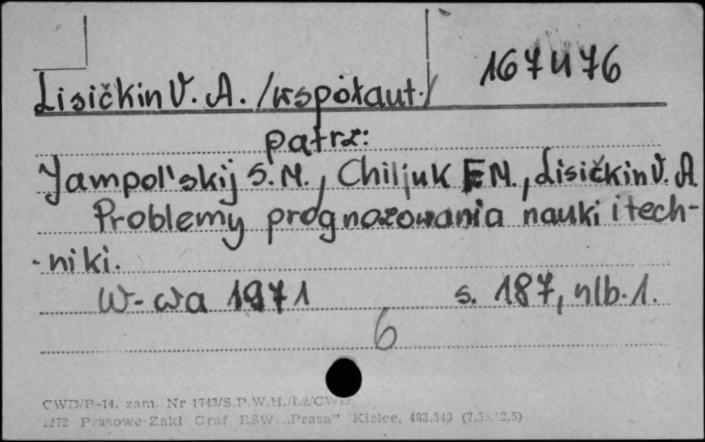 167476
Lisičkin V. A. /współaut./
patrz:
Jampol'skij S. M., Chiljuk F M., Lisičkin V. A
Problemy prognozowania nauki i tech-
-niki.
W-wa 1971 s. 187, nlb. 1.
6
CWD/B-14. zam. Nr 1743/S.P.W.H./Łź/CWD.
1272 Prasowe Zakł Graf RSW „Prasa” Kielce, 483.340 (7,5x12,5)